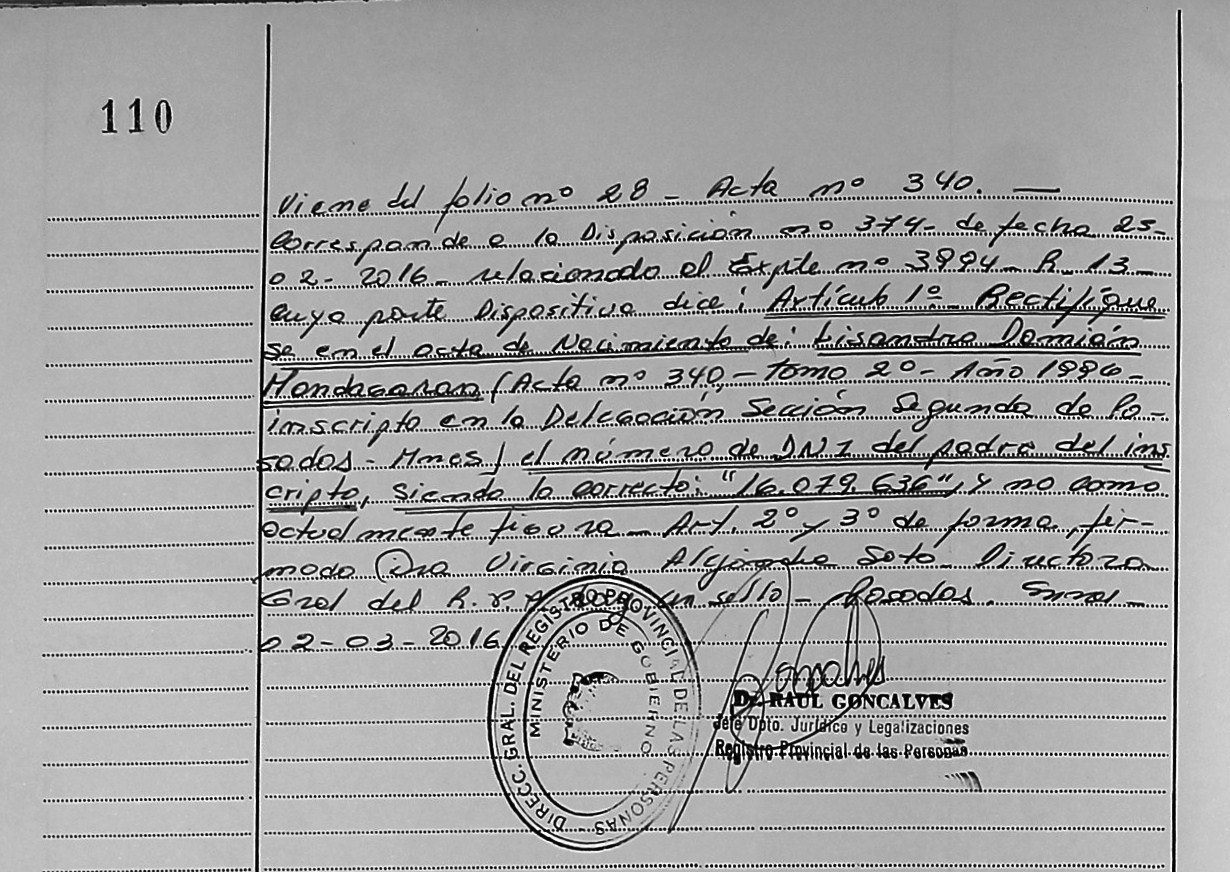 110
Viene del folio nº 28 - Acta nº 340. —
Corresponde a la Disposición nº 374- de fecha 25-
02-2016- relacionado al Expte nº 3994- R-13-
cuya parte Dispositiva dice: Artículo 1º- Rectifíque
se en el acta de Nacimiento de: Lisandro Damián
(Acta nº 340,- Tomo 2º- Año
inscripto en la Delegación Sección Segunda de Po-
sadas- Mnes) el número de DNI del padre del ins
cripto, siendo lo correcto: "16.079.636", y no como
actualmente figura- Art. 2º y 3º de forma, fir-
mado Dra Virginia Alejandra Soto- Directora
Gral del R.P. un sello- Posadas.
02-03-2016
DIRECC. GRAL. DEL REGISTRO PROVINCIAL DE LAS PERSONAS
MINISTERIO DE GOBIERNO
Dr. RAUL GONCALVES
Jefe Dpto. Jurídico y Legalizaciones
Registro Provincial de las Personas